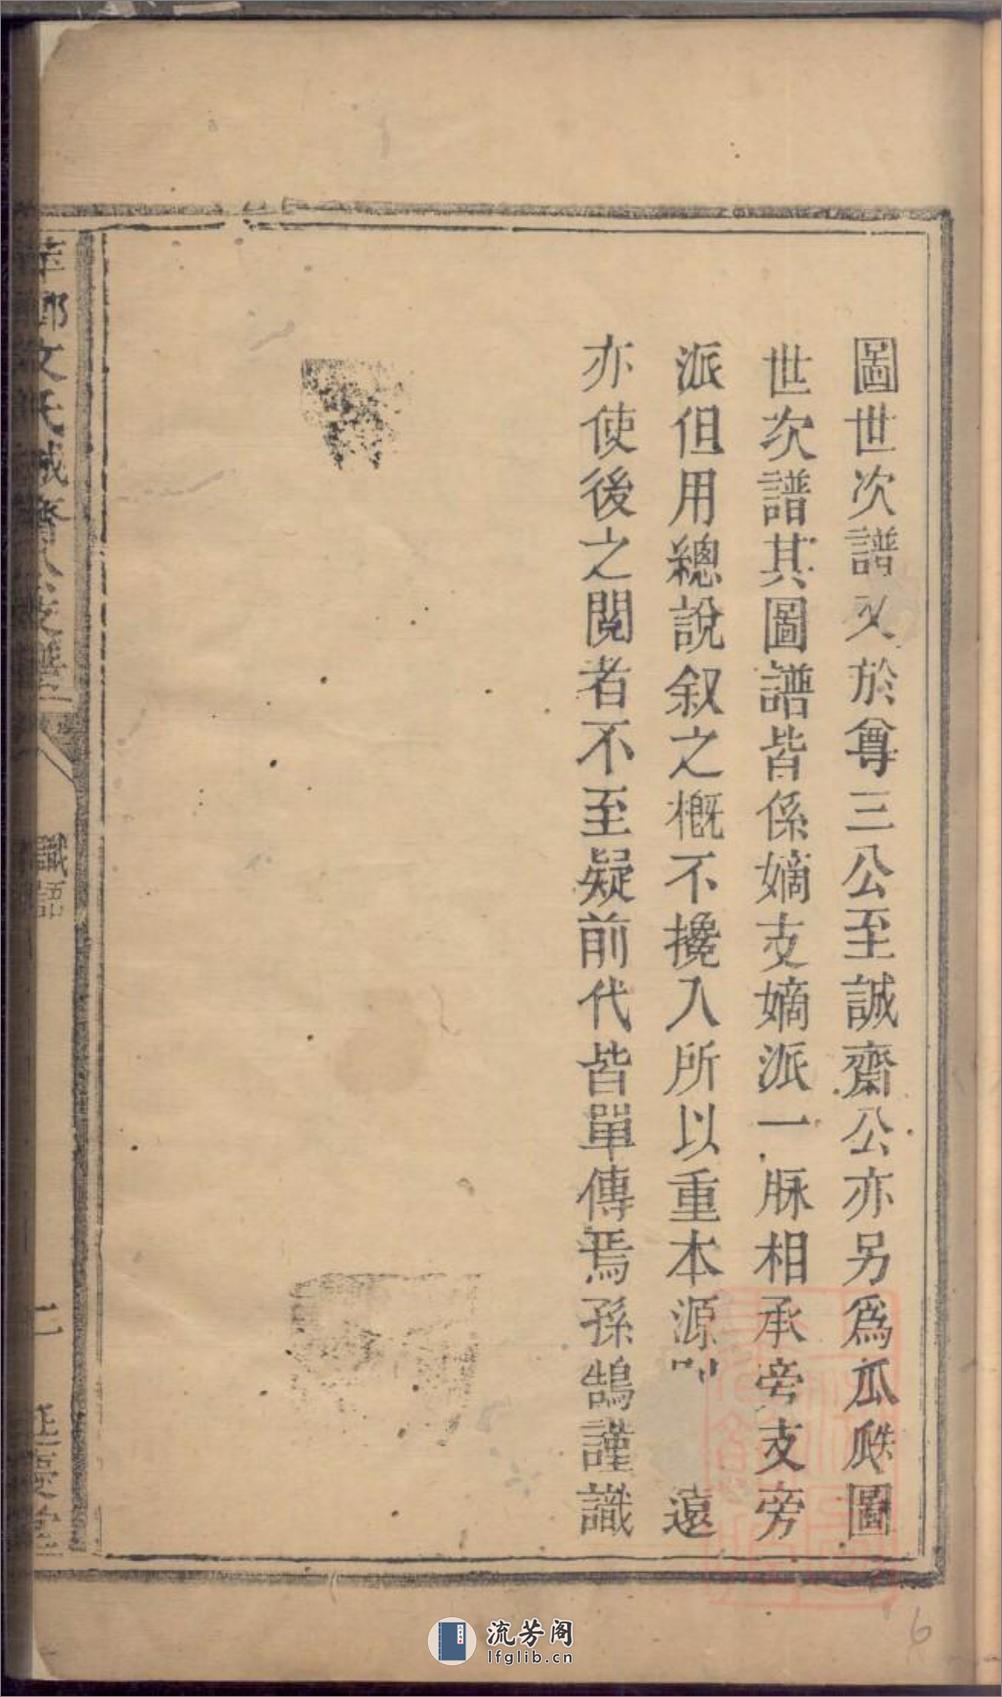 圖世次譜又於尊三公至誠齋公亦另為瓜瓞圖
世次譜其圖譜皆係嫡支嫡派一脉相承旁支旁
派但用總說叙之概不攙入所以重本源 遠
亦使後之閱者不至疑前代皆單傳焉孫鵠謹識
鄉文氏誠齋公支譜
識語
二
6
流芳阁
lfglib.cn